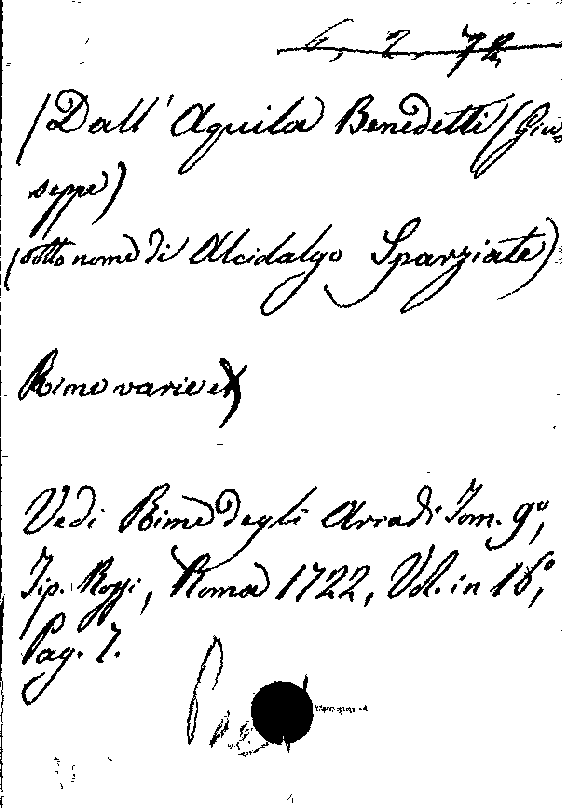 6. 2. 72
(Dall' Aquila Benedetti (Giu=
seppe)
(sotto nome di Alcidalgo Sparziate)
Rime varie
Vedi Rime degli Arcadi Tom. 9°,
Tip. Rossi, Roma 1722, Vol. in 16°,
Pag. 7.